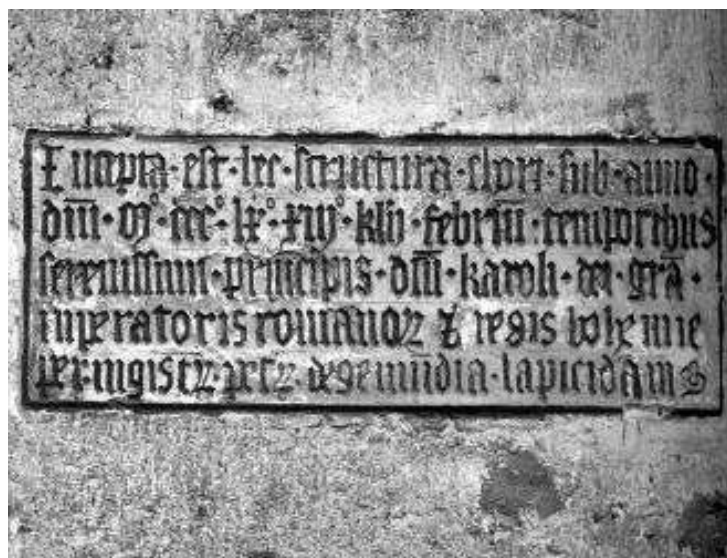 Incepta·est·hec·structura·chori·sub·anno·
dn̄i·mº·cccº·lxº·xiijº·kl̄n·februar̄·temporibus
serenissimi·principis·dn̄i·karoli·dei·gr̄a·
imperatoris romanoꝝ ⁊ regis bohemie
per·mgistꝝ·petꝝ·de gemūdia·lapicidam